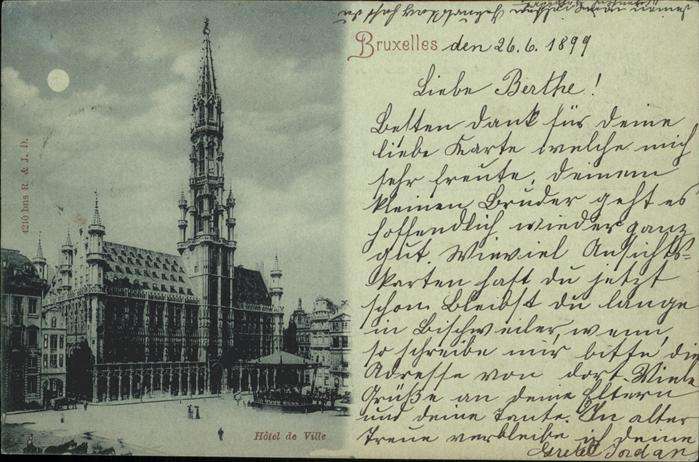 Bruxelles den 26.6.1899
Liebe Berthe!
Besten Dank für deine
liebe Karte welche mich
sehr freute. Deinem
kleinen Bruder geht es
hoffendlich wieder ganz
gut. Wieviel Ansichts-
karten hast du jetzt
schon. Bleibst du lange
in Bischweiler, wenn
so schreibe mir bitte die
Adresse von dort. Viele
Grüße an deine Eltern
und deine Tante. In alter
Treue verbleibe ich deine
Gretel Jordan
4210 bus R. & J. D.
Hôtel de Ville